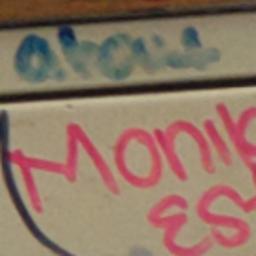 about
Monik
ES